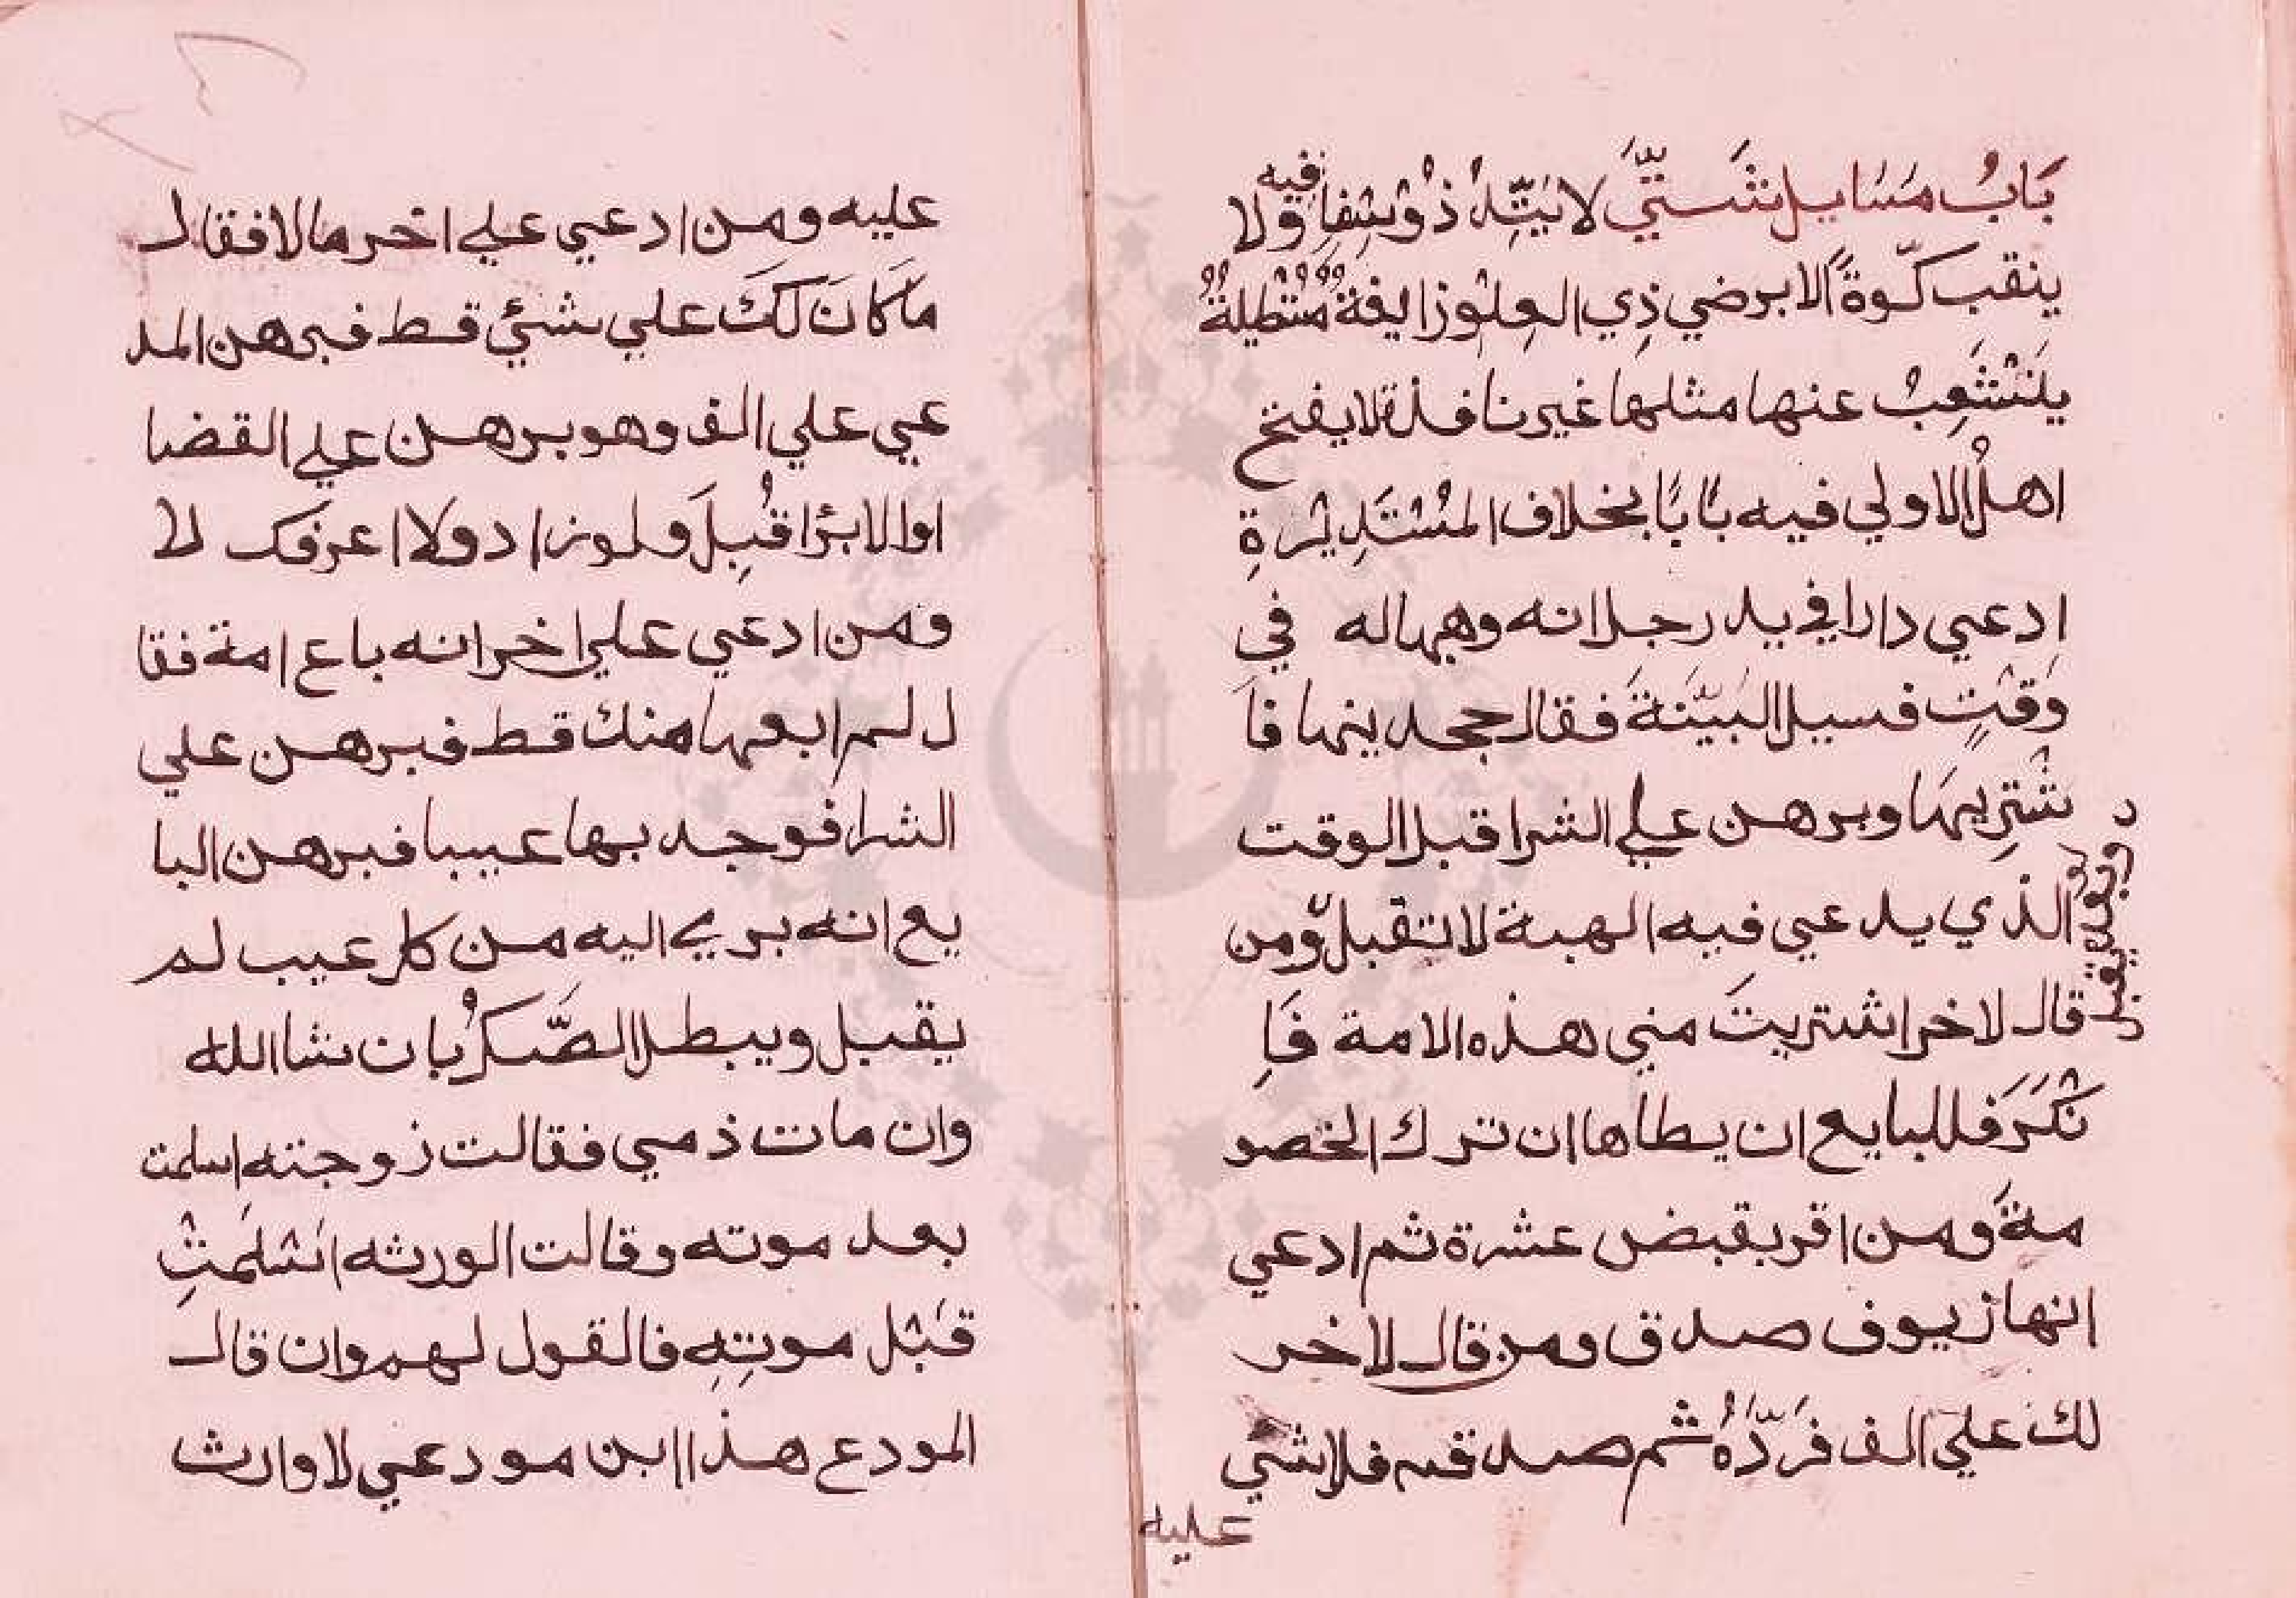 بَابُ مَسَايل شَتّيَ لا يَتِدُ ذُوْ سِفْلٍ فيه ولا
ينقب كَوّةً الا برضي ذِي العِلْوْ زايغةٌ مُسْتَطِيلةٌ
يَتَشَعَّبُ عنها مثلها غير نافذة لا يفتح
اهلُ الاولي فيه بابًا بخلاف المُسْتَدِيْرَةِ
ادعي دارا في يد رجل انه وهبها له في
وَقْتٍ فسيل البَيّنَةَ فقال جحدينها فا
شْتَرِيتها وبرهن علي الشرا قبل الوقت
الذي يدعي فيه الهبة لا تقبل ومن
وبعده يقبل
قال لاخر اشتريتَ مني هذه الامة فَا
نْكَرَ فللبايع ان يطاها ان ترك الخصو
مةَ ومن اقر بقبض عشرة ثم ادعي
انها زيوف صدق ومن قال لاخر
لك علي الف فَرَدَّهُ ثم صدقه فلا شي
عليه
عليه ومن ادعي علي اخر مالا فقال
مَا كَانَ لَكَ علي شئ قط فبرهن المد
عي علي الف وهو برهن علي القضا
او الابرا قُبِلَ ولو زاد ولا اعرفك لا
ومن ادعي علي اخر انه باع امة فقا
ل لم ابعها منك قط فبرهن علي
الشرا فوجد بها عيبا فبرهن البا
يع انه بري اليه من كل عيب لم
يقبل ويبطل الصَّكُّ بان شا الله
وان مات ذمي فقالت زوجته اسلمت
بعد موته وقالت الورثه اَسْلَمْتِ
قَبْل موتِهِ فالقول لهم وان قال
المودع هذا ابن مودعي لا وارث